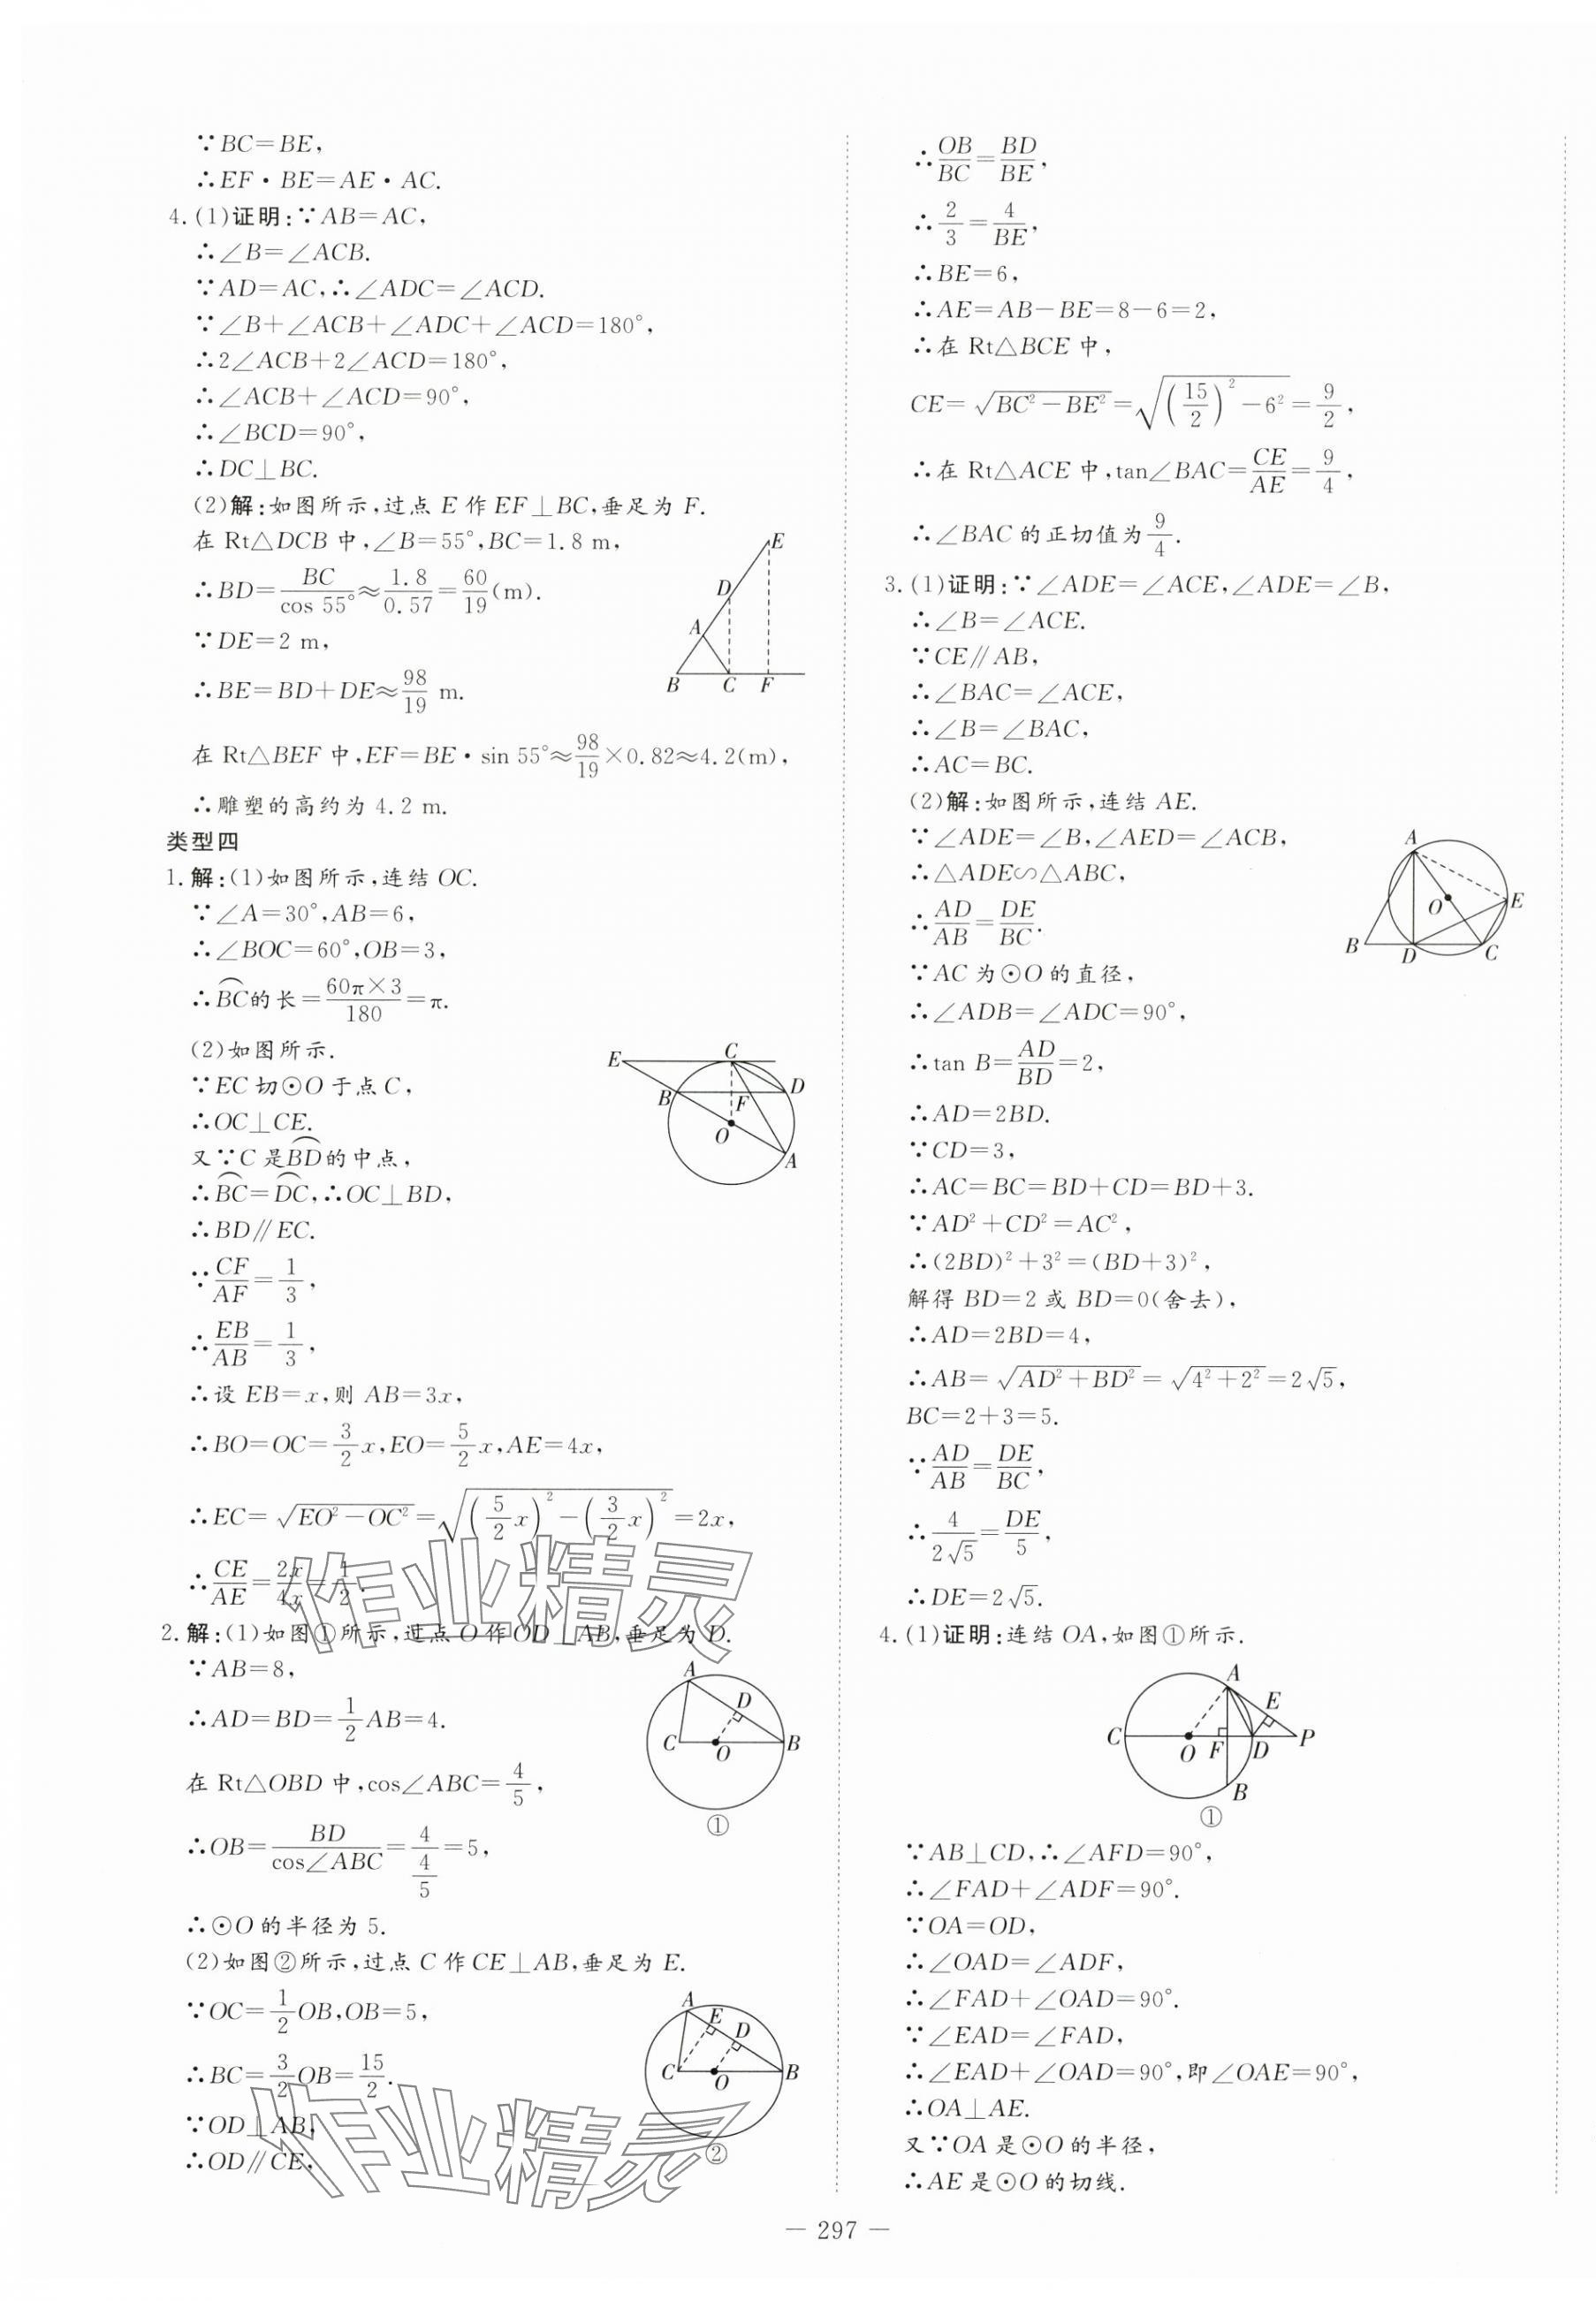 ∵BC=BE,
∴EF·BE=AE·AC.
4.(1)证明:∵AB=AC,
∴∠B=∠ACB.
∵AD=AC,∴∠ADC=∠ACD.
∵∠B+∠ACB+∠ADC+∠ACD=180°,
∴2∠ACB+2∠ACD=180°,
∴∠ACB+∠ACD=90°,
∴∠BCD=90°,
∴DC⊥BC.
(2)解:如图所示,过点E作EF⊥BC,垂足为F.
在Rt△DCB中,∠B=55°,BC=1.8 m,
∴BD=BC/cos 55°≈1.8/0.57=60/19(m).
∵DE=2 m,
∴BE=BD+DE≈98/19 m.
E
D
A
B C F
在Rt△BEF中,EF=BE·sin 55°≈98/19×0.82≈4.2(m),
∴雕塑的高约为4.2 m.
类型四
1.解:(1)如图所示,连结OC.
∵∠A=30°,AB=6,
∴∠BOC=60°,OB=3,
∴⌒BC的长=60π×3/180=π.
(2)如图所示.
∵EC切⊙O于点C,
∴OC⊥CE.
又∵C是⌒BD的中点,
∴⌒BC=⌒DC,∴OC⊥BD,
∴BD∥EC.
E C
B F D
O
A
∵CF/AF=1/3,
∴EB/AB=1/3,
∴设EB=x,则AB=3x,
∴BO=OC=3/2x,EO=5/2x,AE=4x,
∴EC=√(EO²-OC²)=√((5/2x)²-(3/2x)²)=2x,
∴CE/AE=2x/4x=1/2.
作业精灵
2.解:(1)如图①所示,过点O作OD⊥AB,垂足为D.
∵AB=8,
∴AD=BD=1/2AB=4.
在Rt△OBD中,cos∠ABC=4/5,
∴OB=BD/cos∠ABC=4/(4/5)=5,
∴⊙O的半径为5.
A
D
C O B
①
(2)如图②所示,过点C作CE⊥AB,垂足为E.
∵OC=1/2OB,OB=5,
∴BC=3/2OB=15/2.
∵OD⊥AB,
∴OD∥CE,
A
E D
C O B
②
作业精灵
∴OB/BC=BD/BE,
∴2/3=4/BE,
∴BE=6,
∴AE=AB-BE=8-6=2,
∴在Rt△BCE中,
CE=√(BC²-BE²)=√((15/2)²-6²)=9/2,
∴在Rt△ACE中,tan∠BAC=CE/AE=9/4,
∴∠BAC的正切值为9/4.
3.(1)证明:∵∠ADE=∠ACE,∠ADE=∠B,
∴∠B=∠ACE.
∵CE∥AB,
∴∠BAC=∠ACE,
∴∠B=∠BAC,
∴AC=BC.
(2)解:如图所示,连结AE.
∵∠ADE=∠B,∠AED=∠ACB,
∴△ADE∽△ABC,
∴AD/AB=DE/BC.
∵AC为⊙O的直径,
∴∠ADB=∠ADC=90°,
A
O E
B D C
∴tan B=AD/BD=2,
∴AD=2BD.
∵CD=3,
∴AC=BC=BD+CD=BD+3.
∵AD²+CD²=AC²,
∴(2BD)²+3²=(BD+3)²,
解得BD=2或BD=0(舍去),
∴AD=2BD=4,
∴AB=√(AD²+BD²)=√(4²+2²)=2√5,
BC=2+3=5.
∵AD/AB=DE/BC,
∴4/2√5=DE/5,
∴DE=2√5.
4.(1)证明:连结OA,如图①所示.
A
E
C O F D P
B
①
∵AB⊥CD,∴∠AFD=90°,
∴∠FAD+∠ADF=90°.
∵OA=OD,
∴∠OAD=∠ADF,
∴∠FAD+∠OAD=90°.
∵∠EAD=∠FAD,
∴∠EAD+∠OAD=90°,即∠OAE=90°,
∴OA⊥AE.
又∵OA是⊙O的半径,
∴AE是⊙O的切线.
— 297 —